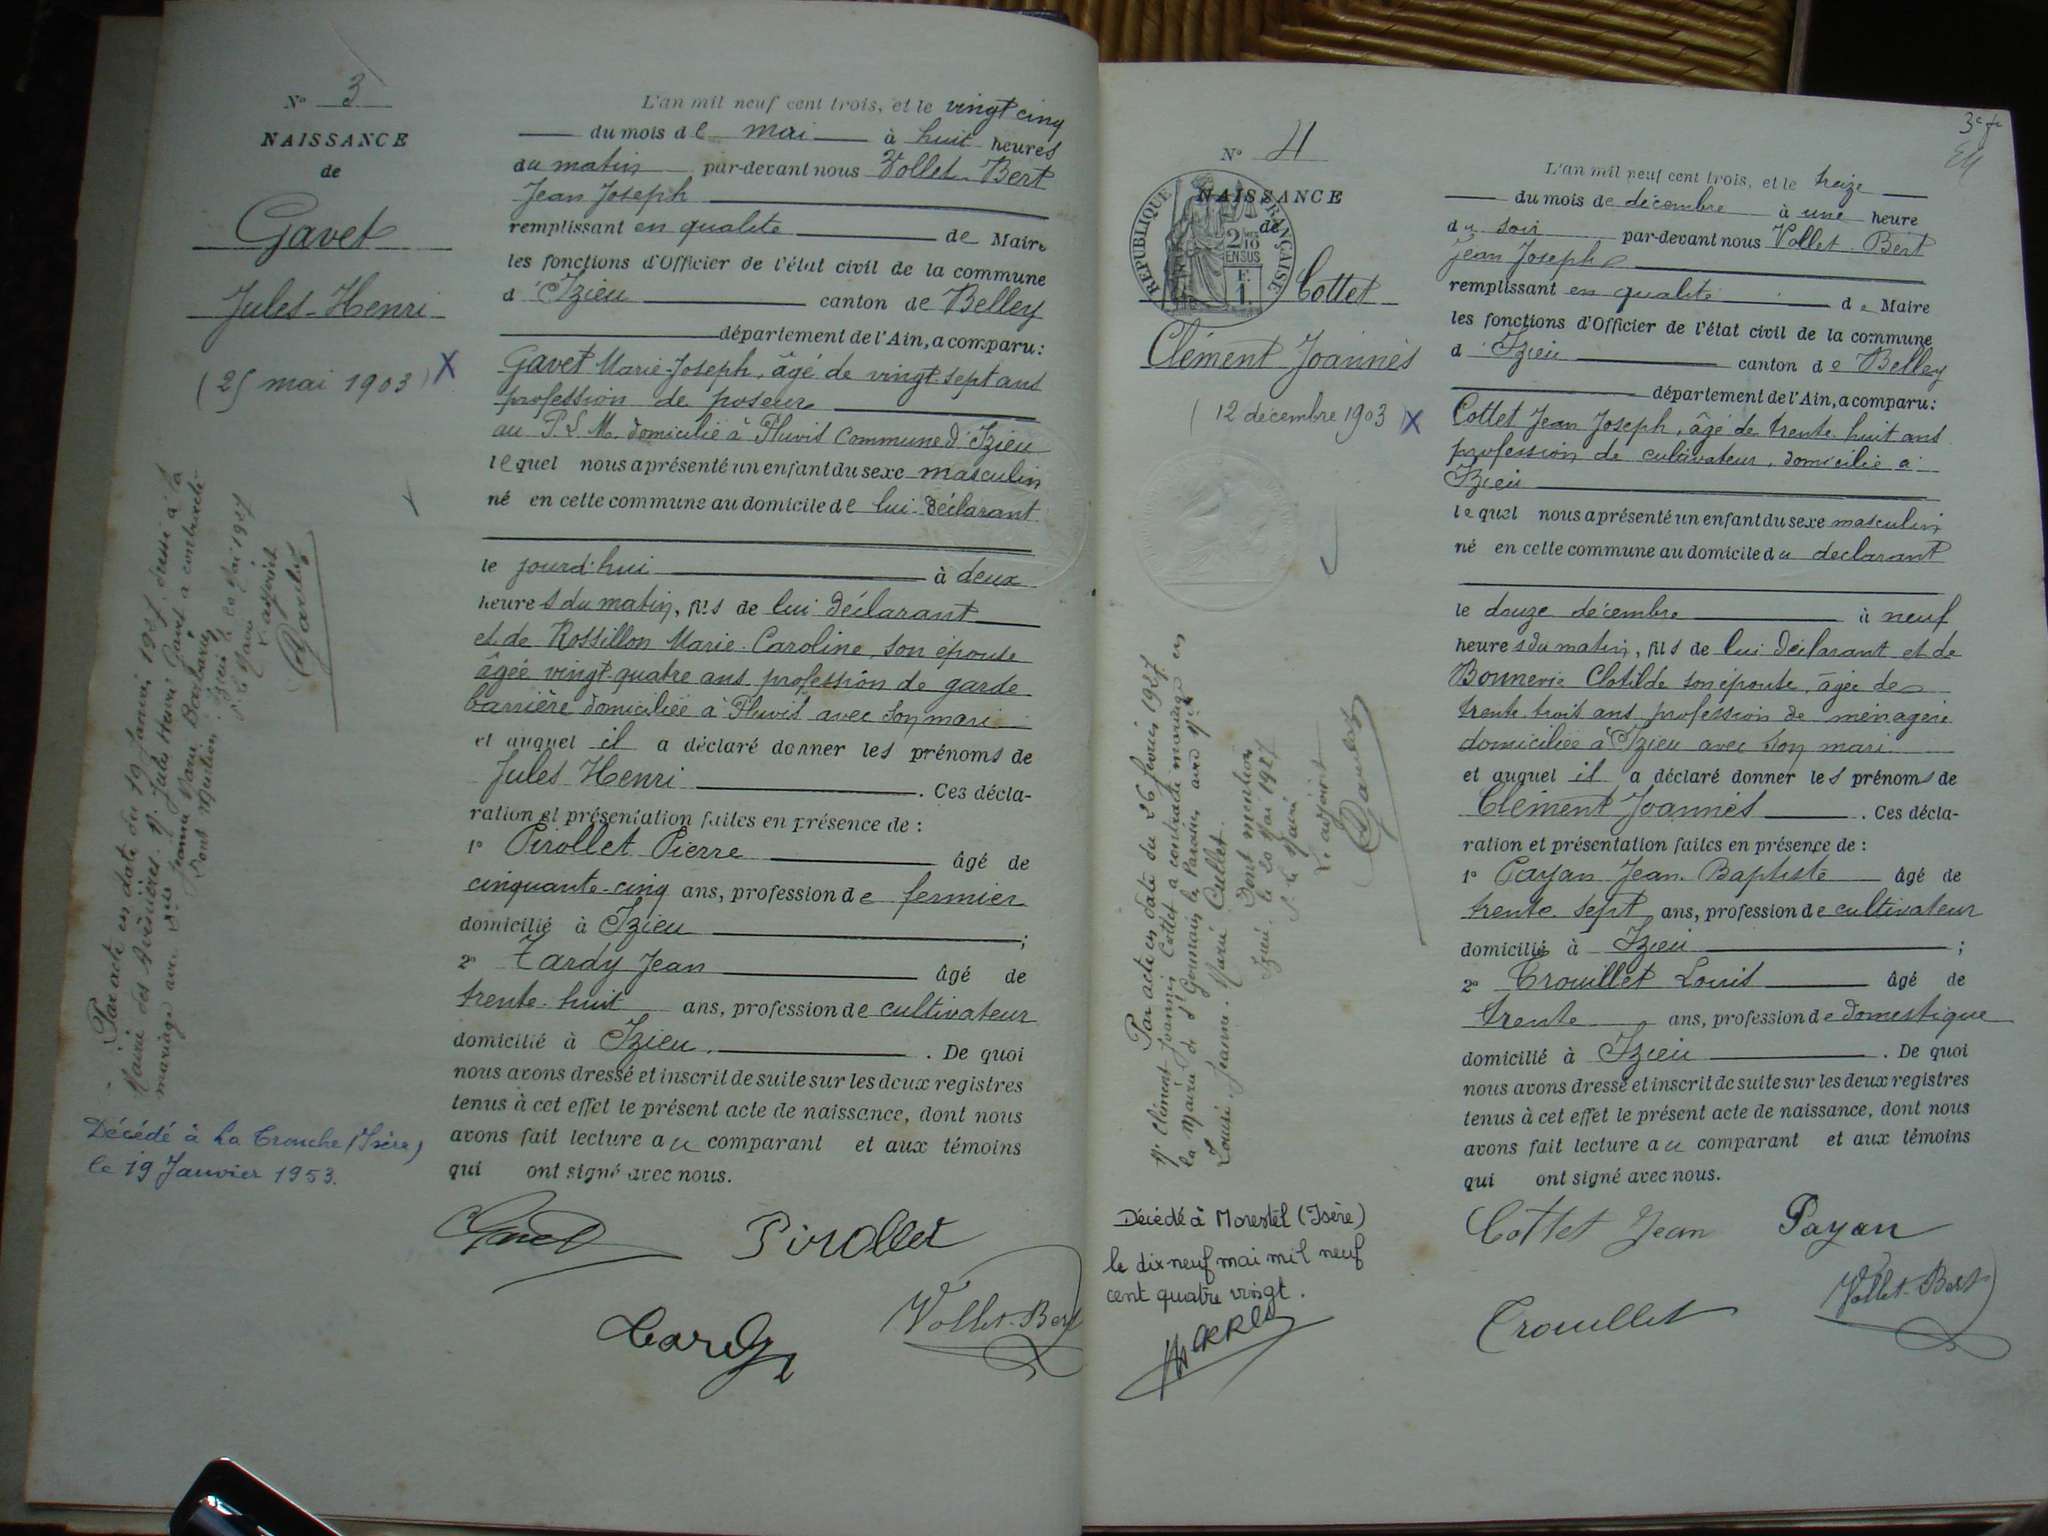 N° 3
NAISSANCE
de
Gavet
Jules-Henri
(25 mai 1903)
L'an mil neuf cent trois, et le vingt cinq
du mois de mai à huit heures
du matin par-devant nous Vollet-Bert
Jean Joseph
remplissant en qualité de Maire
les fonctions d'Officier de l'état civil de la commune
d'Izieu canton de Belley
département de l'Ain, a comparu:
Gavet Marie-Joseph, âgé de vingt-sept ans
profession de poseur
au P. L. M. domicilié à Pluvis commune d'Izieu
lequel nous a présenté un enfant du sexe masculin
né en cette commune au domicile de lui déclarant
le jourd'hui à deux
heures du matin, fils de lui déclarant
et de Rossillon Marie-Caroline, son épouse
âgée vingt-quatre ans profession de garde
barrière domiciliée à Pluvis avec son mari
et auquel il a déclaré donner les prénoms de
Jules Henri . Ces décla-
ration et présentation faites en présence de :
1° Pirollet Pierre âgé de
cinquante-cinq ans, profession de fermier
domicilié à Izieu ;
2° Tardy Jean âgé de
trente-huit ans, profession de cultivateur
domicilié à Izieu . De quoi
nous avons dressé et inscrit de suite sur les deux registres
tenus à cet effet le présent acte de naissance, dont nous
avons fait lecture au comparant et aux témoins
qui ont signé avec nous.
Gavet Pirollet
Tardy Vollet-Bert
Par acte en date du 19 Janvier 1927, dressé à la
Mairie des Avenières, M. Jules Henri Gavet a contracté
mariage avec Mlle Jeanne Marie Barbarin
Dont Mention
Izieu le 20 Mai 1927
P. le Maire
L'adjoint
Décédé à La Tronche (Isère)
le 19 Janvier 1953.
3e fe
N° 4
NAISSANCE
de
RÉPUBLIQUE FRANÇAISE
2/10
EN SUS
F.
1.
Cottet
Clément Joannès
(12 décembre 1903)
L'an mil neuf cent trois, et le treize
du mois de décembre à une heure
du soir par-devant nous Vollet-Bert
Jean Joseph
remplissant en qualité de Maire
les fonctions d'Officier de l'état civil de la commune
d'Izieu canton de Belley
département de l'Ain, a comparu:
Cottet Jean Joseph, âgé de trente-huit ans
profession de cultivateur, domicilié à
Izieu
lequel nous a présenté un enfant du sexe masculin
né en cette commune au domicile du déclarant
le douze décembre à neuf
heures du matin, fils de lui déclarant et de
Bonnerie Clotilde son épouse, âgée de
trente-trois ans profession de ménagère
domiciliée à Izieu avec son mari
et auquel il a déclaré donner les prénoms de
Clément Joannès . Ces décla-
ration et présentation faites en présence de :
1° Payan Jean-Baptiste âgé de
trente sept ans, profession de cultivateur
domicilié à Izieu ;
2° Trouillet Louis âgé de
trente ans, profession de domestique
domicilié à Izieu . De quoi
nous avons dressé et inscrit de suite sur les deux registres
tenus à cet effet le présent acte de naissance, dont nous
avons fait lecture au comparant et aux témoins
qui ont signé avec nous.
Cottet Jean Payan
Trouillet Vollet-Bert
Par acte en date du 26 février 1927
Mr Clément Joannès Cottet a contracté mariage en
la Mairie de St Germain les Paroisses avec Mlle
Louise Jeanne Marie Cullet.
Dont mention
Izieu le 20 Mai 1927
P. le Maire
L'adjoint
Décédé à Morestel (Isère)
le dix neuf mai mil neuf
cent quatre vingt.